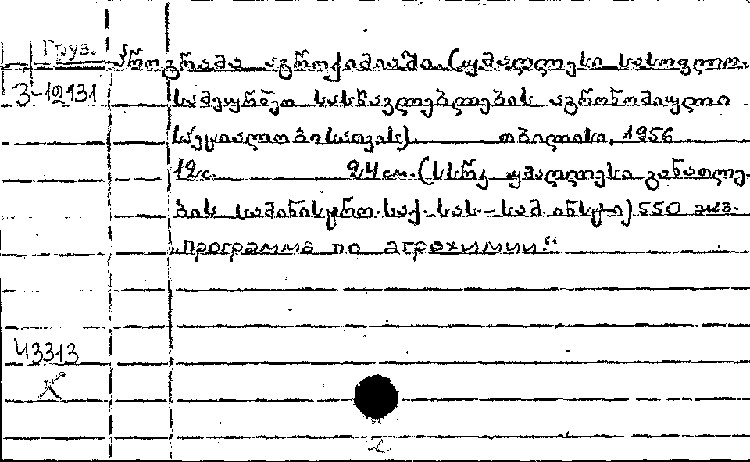 Груз. პროგრამა აგროქიმიაში. (უმაღლესი სასოფლო-
3-12131 სამეურნეო სასწავლებლების აგრონომიული
სპეციალობისათვის). თბილისი, 1956
12 с. 24 см. (სსრკ უმაღლესი განათლე-
ბის სამინისტრო. საქ. სას.-სამ. ინსტი) 550 экз.
"Программа по агрохимии."
43313